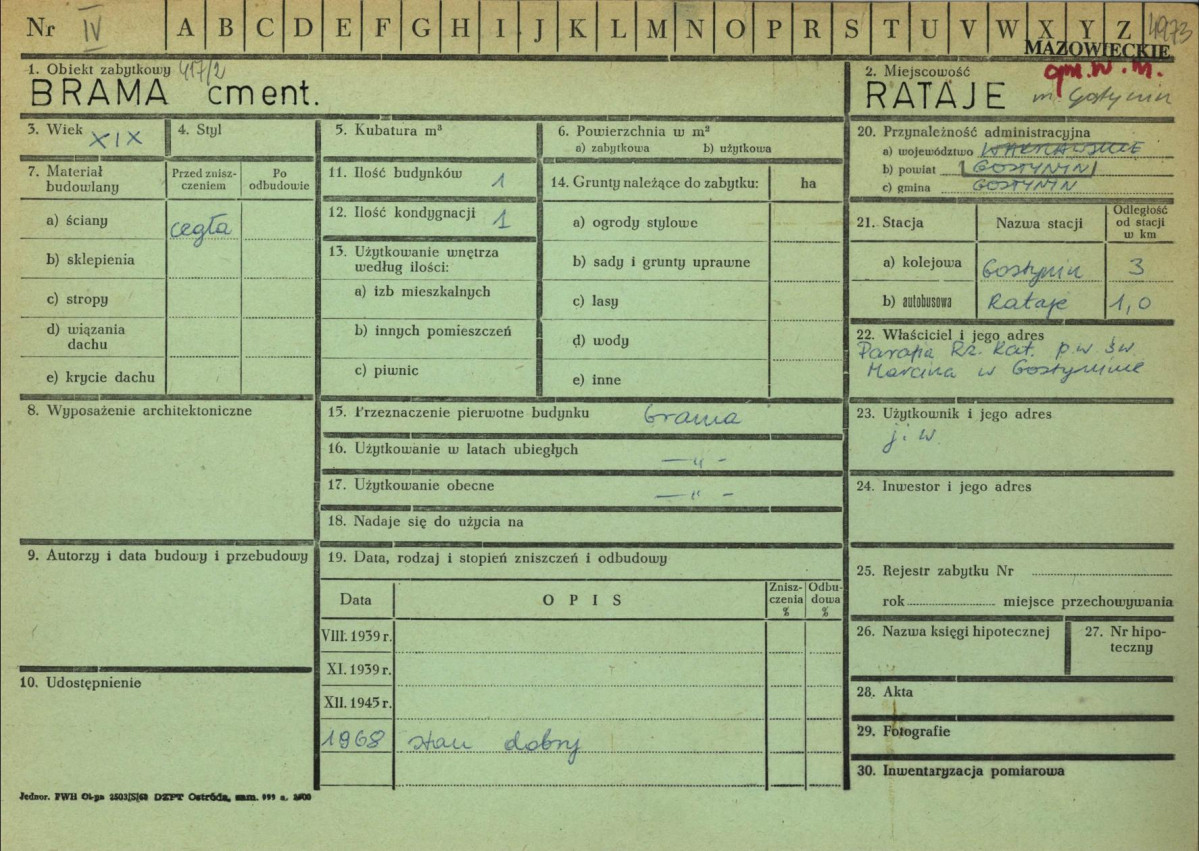 Nr IV A B C D E F G H I J K L M N O P R S T U V W X Y Z 4973
MAZOWIECKIE
1. Obiekt zabytkowy 417/2
BRAMA cment.
2. Miejscowość
RATAJE m. Gostynin
3. Wiek XIX
4. Styl
5. Kubatura m³
6. Powierzchnia w m²
a) zabytkowa b) użytkowa
7. Materiał budowlany
Przed znisz-
czeniem
Po
odbudowie
a) ściany cegła
b) sklepienia
c) stropy
d) wiązania
dachu
e) krycie dachu
8. Wyposażenie architektoniczne
9. Autorzy i data budowy i przebudowy
10. Udostępnienie
11. Ilość budynków 1
12. Ilość kondygnacji 1
13. Użytkowanie wnętrza
według ilości:
a) izb mieszkalnych
b) innych pomieszczeń
c) piwnic
14. Grunty należące do zabytku: ha
a) ogrody stylowe
b) sady i grunty uprawne
c) lasy
d) wody
e) inne
15. Przeznaczenie pierwotne budynku brama
16. Użytkowanie w latach ubiegłych —„-
17. Użytkowanie obecne —„-
18. Nadaje się do użycia na
19. Data, rodzaj i stopień zniszczeń i odbudowy
Data
OPIS
Znisz-
czenia
%
Odbu-
dowa
%
VIII. 1939 r.
XI. 1939 r.
XII. 1945 r.
1968 stan dobry
20. Przynależność administracyjna
a) województwo WARSZAWSKIE
b) powiat GOSTYNIN
c) gmina GOSTYNIN
21. Stacja
Nazwa stacji
Odległość
od stacji
w km
a) kolejowa Gostynin 3
b) autobusowa Rataje 1,0
22. Właściciel i jego adres
Parafia Rz. Kat. p.w. św.
Marcina w Gostyninie
23. Użytkownik i jego adres
j. w.
24. Inwestor i jego adres
25. Rejestr zabytku Nr
rok miejsce przechowywania
26. Nazwa księgi hipotecznej
27. Nr hipo-
teczny
28. Akta
29. Fotografie
30. Inwentaryzacja pomiarowa
Jednor. PWH Olga 2503/S/68 DZPT Ostróda, zam. 999 a. 2500